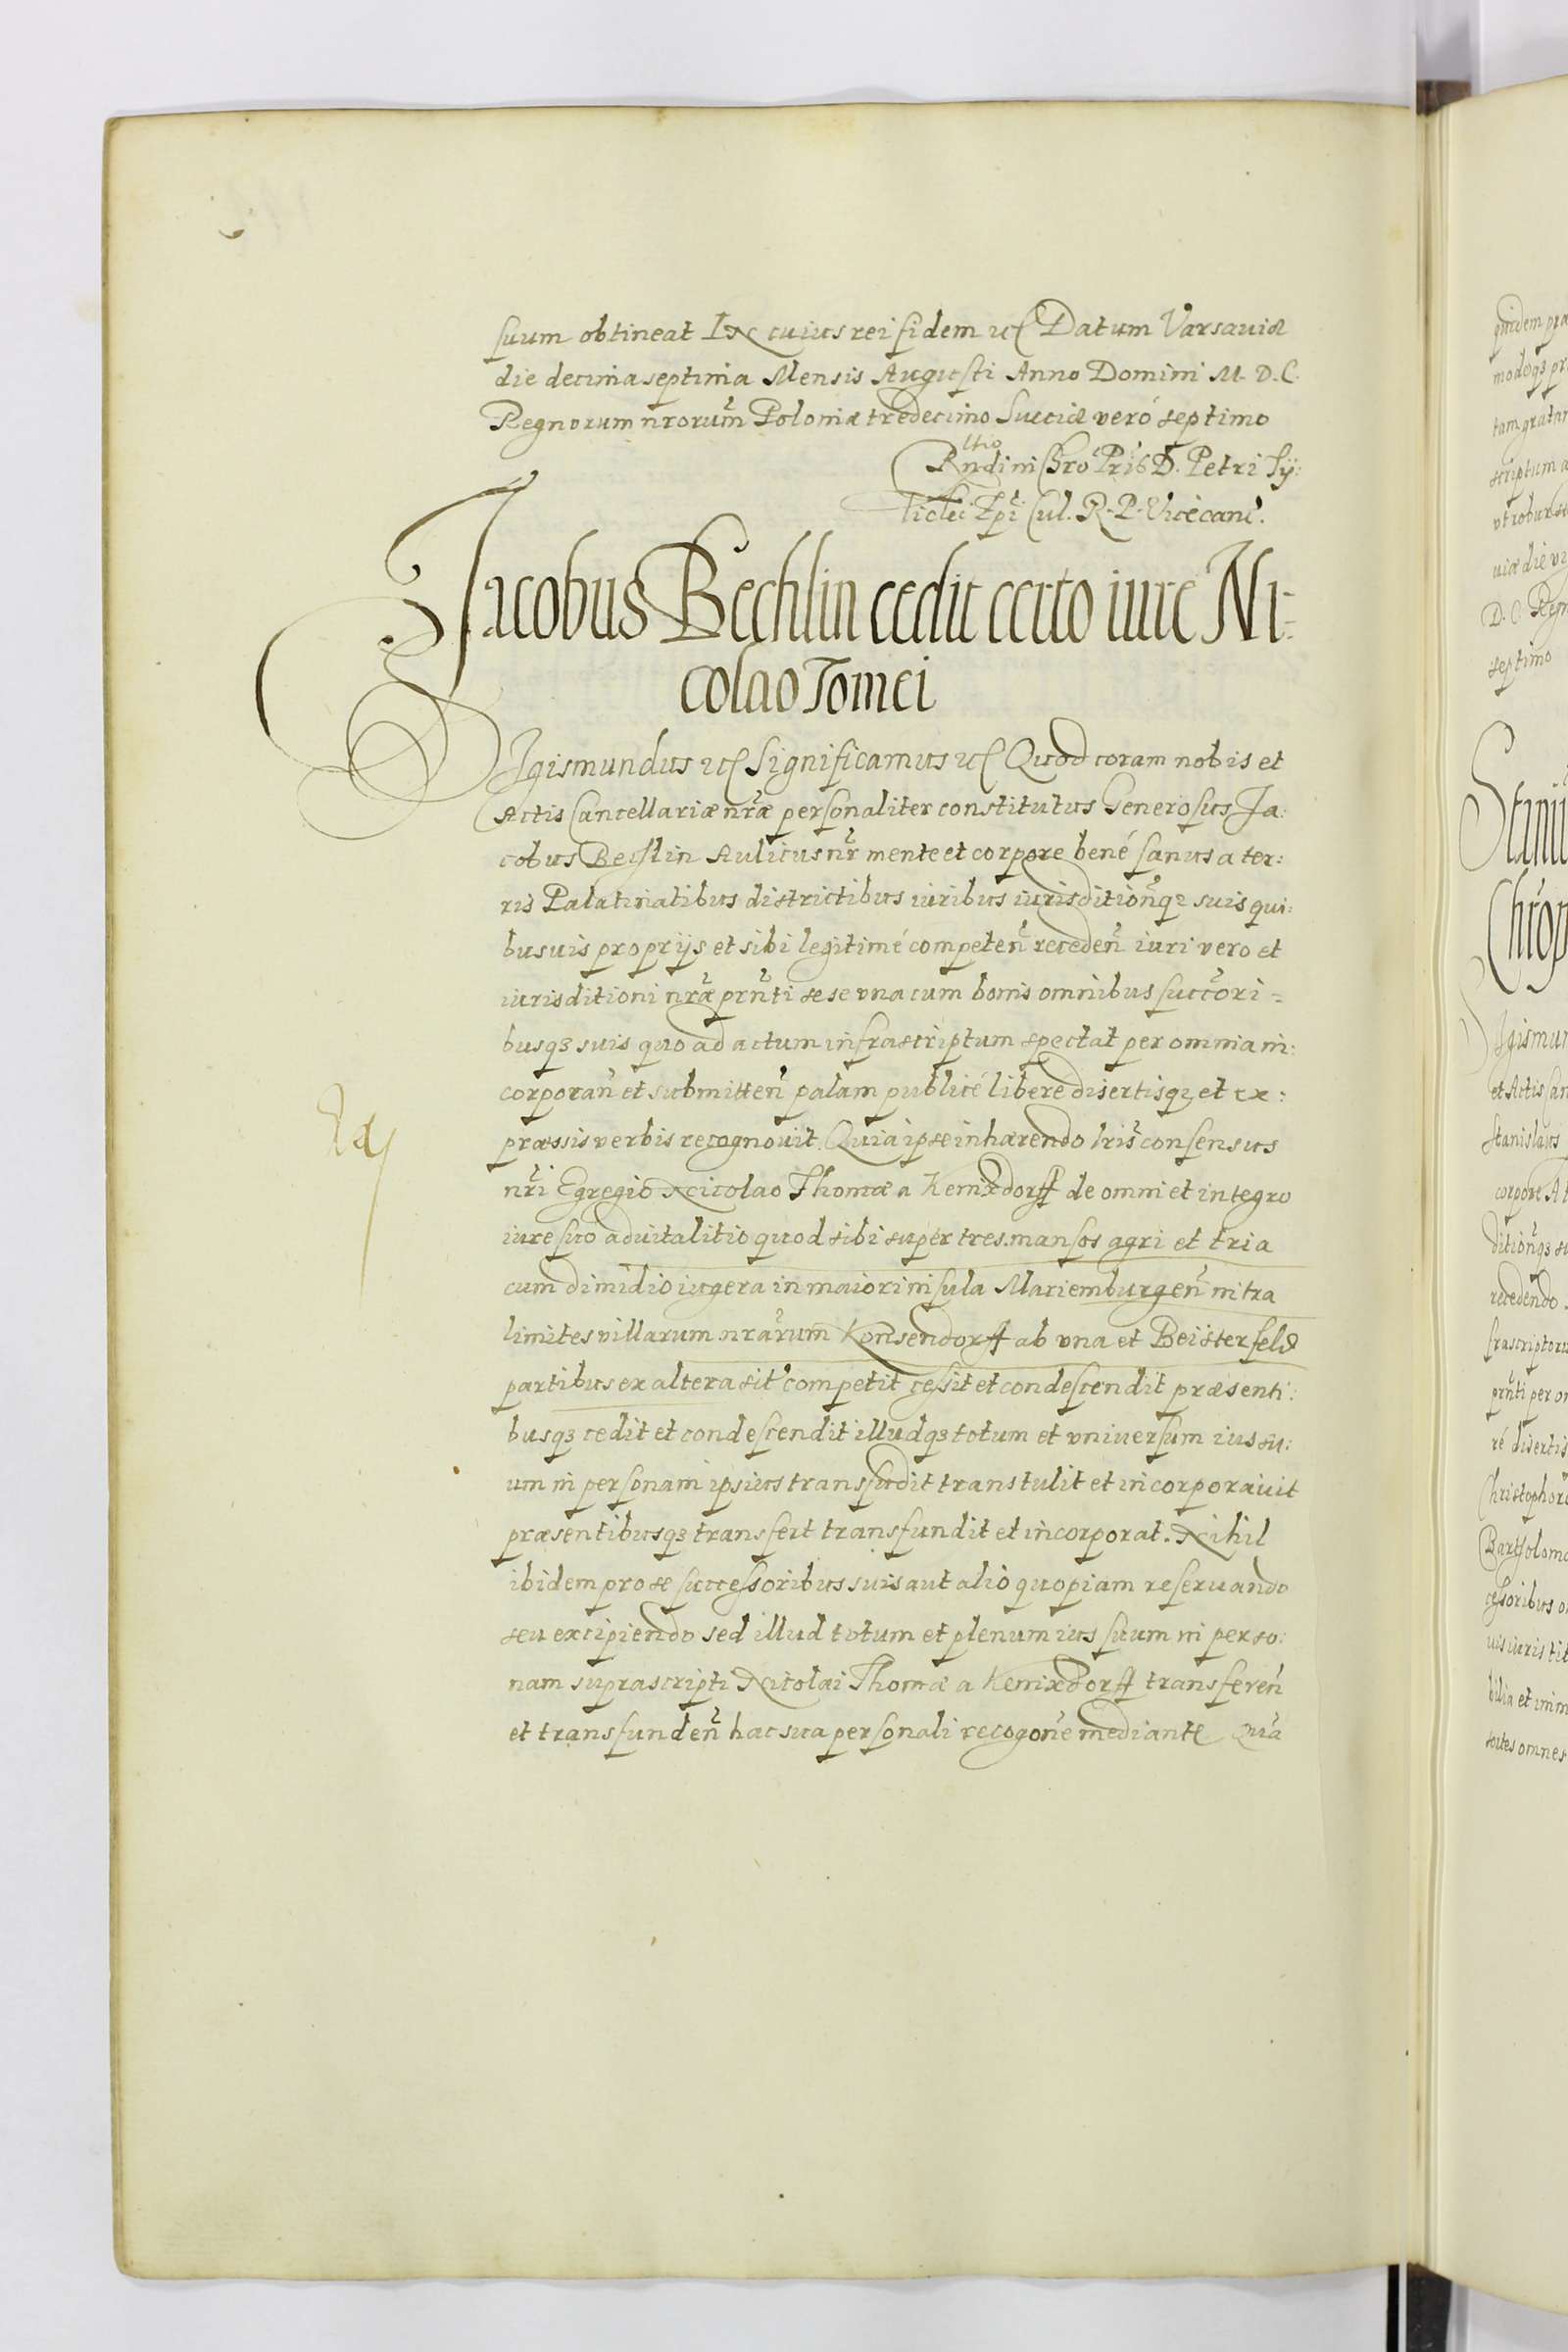 suum obtineat In cuius rei fidem etc Datum Varsauiæ
die decima septima Mensis Augusti Anno Domini M. D. C.
Regnorum nrorum Poloniæ tredecimo Sueciæ veró septimo
Rndini Chro Pris D. Petri Ty:
licki Epi Cul. R. P. Vicecanc.
Jacobus Bechlin cedit certo iure Ni-
colao Tomei
Sigismundus etc Significamus etc Quod coram nobis et
Actis Cancellariæ nræ personaliter constitutus Generosus Ja:
cobus Bechlin Aulicus nr mente et corpore bené sanus a ter:
ris Palatinatibus districtibus iuribus iurisditionqz suis qui:
busuis proprijs et sibi legitimé competen receden iuri vero et
iurisditioni nræ prnti sese vna cum bonis omnibus succori-
busqz suis quo ad actum infrascriptum spectat per omnia in:
corporan et submitten palam publicé liberé disertisqz et ex:
præssis verbis recognouit. Quia ipse inhærendo lris consensus
nri Egregio Nicolao Thomæ a Kenixdorff de omni et integro
iure suo aduitalitio quod sibi super tres mansos agri et tria
cum dimidio iugera in maiori insula Mariemburgen intra
limites villarum nrarum Konsendorff ab vna et Beisterfeld
partibus ex altera sit competit cessit et condescendit præsenti:
busqz cedit et condescendit illudqz totum et vniuersum ius su:
um in personam ipsius transfudit transtulit et incorporauit
præsentibusqz transfert transfundit et incorporat. Nihil
ibidem pro se successoribus suis aut alio quopiam reseruando
seu excipiendo sed illud totum et plenum ius suum in perso:
nam suprascripti Nicolai Thomæ a Kenixdorff transferen
et transfunden hac sua personali recogone mediante Qua